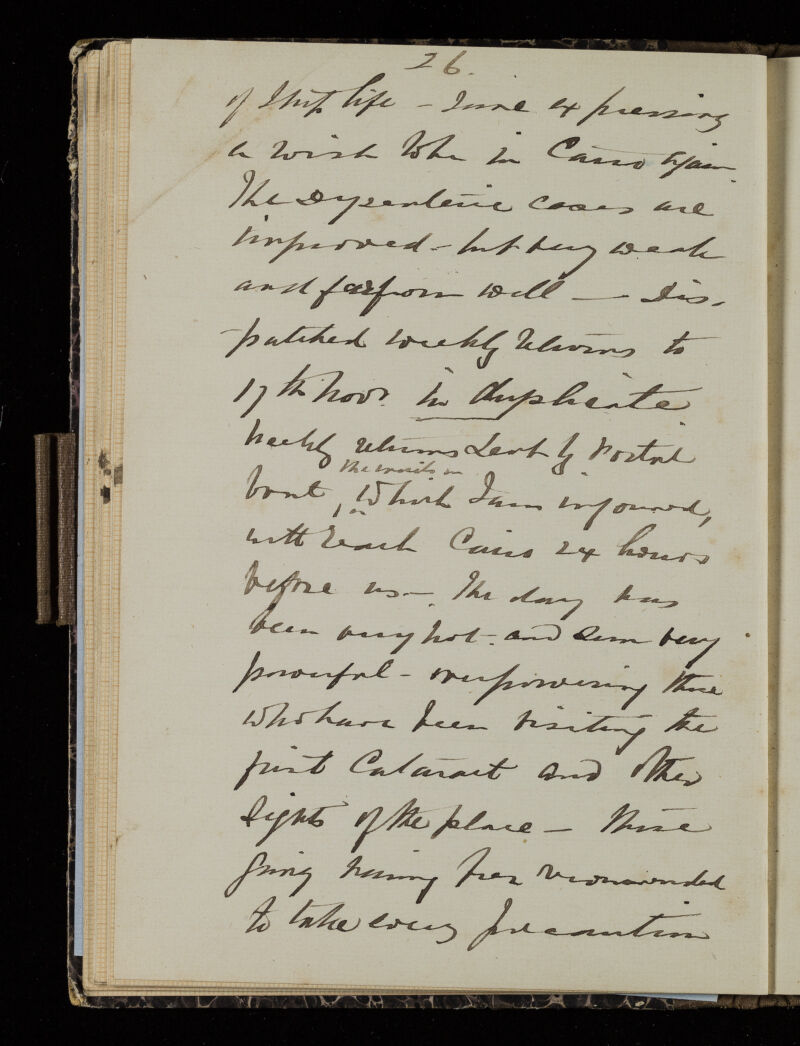 26.
of Ship life – Some expressing
a wish to be in Cairo again.
The Dysenteric cases are
improved – but very weak
and far from well — Dis-
-patched weekly Returns to
17th Novr. in duplicate
Weekly returns sent by Postal
boat, the mails in which I am informed,
will reach Cairo 24 hours
before us –. The day has
been very hot – and sun very
powerful – overpowering those
who have been visiting the
first Cataract and other
Sights of the place – those
going having been recommended
to take every precaution